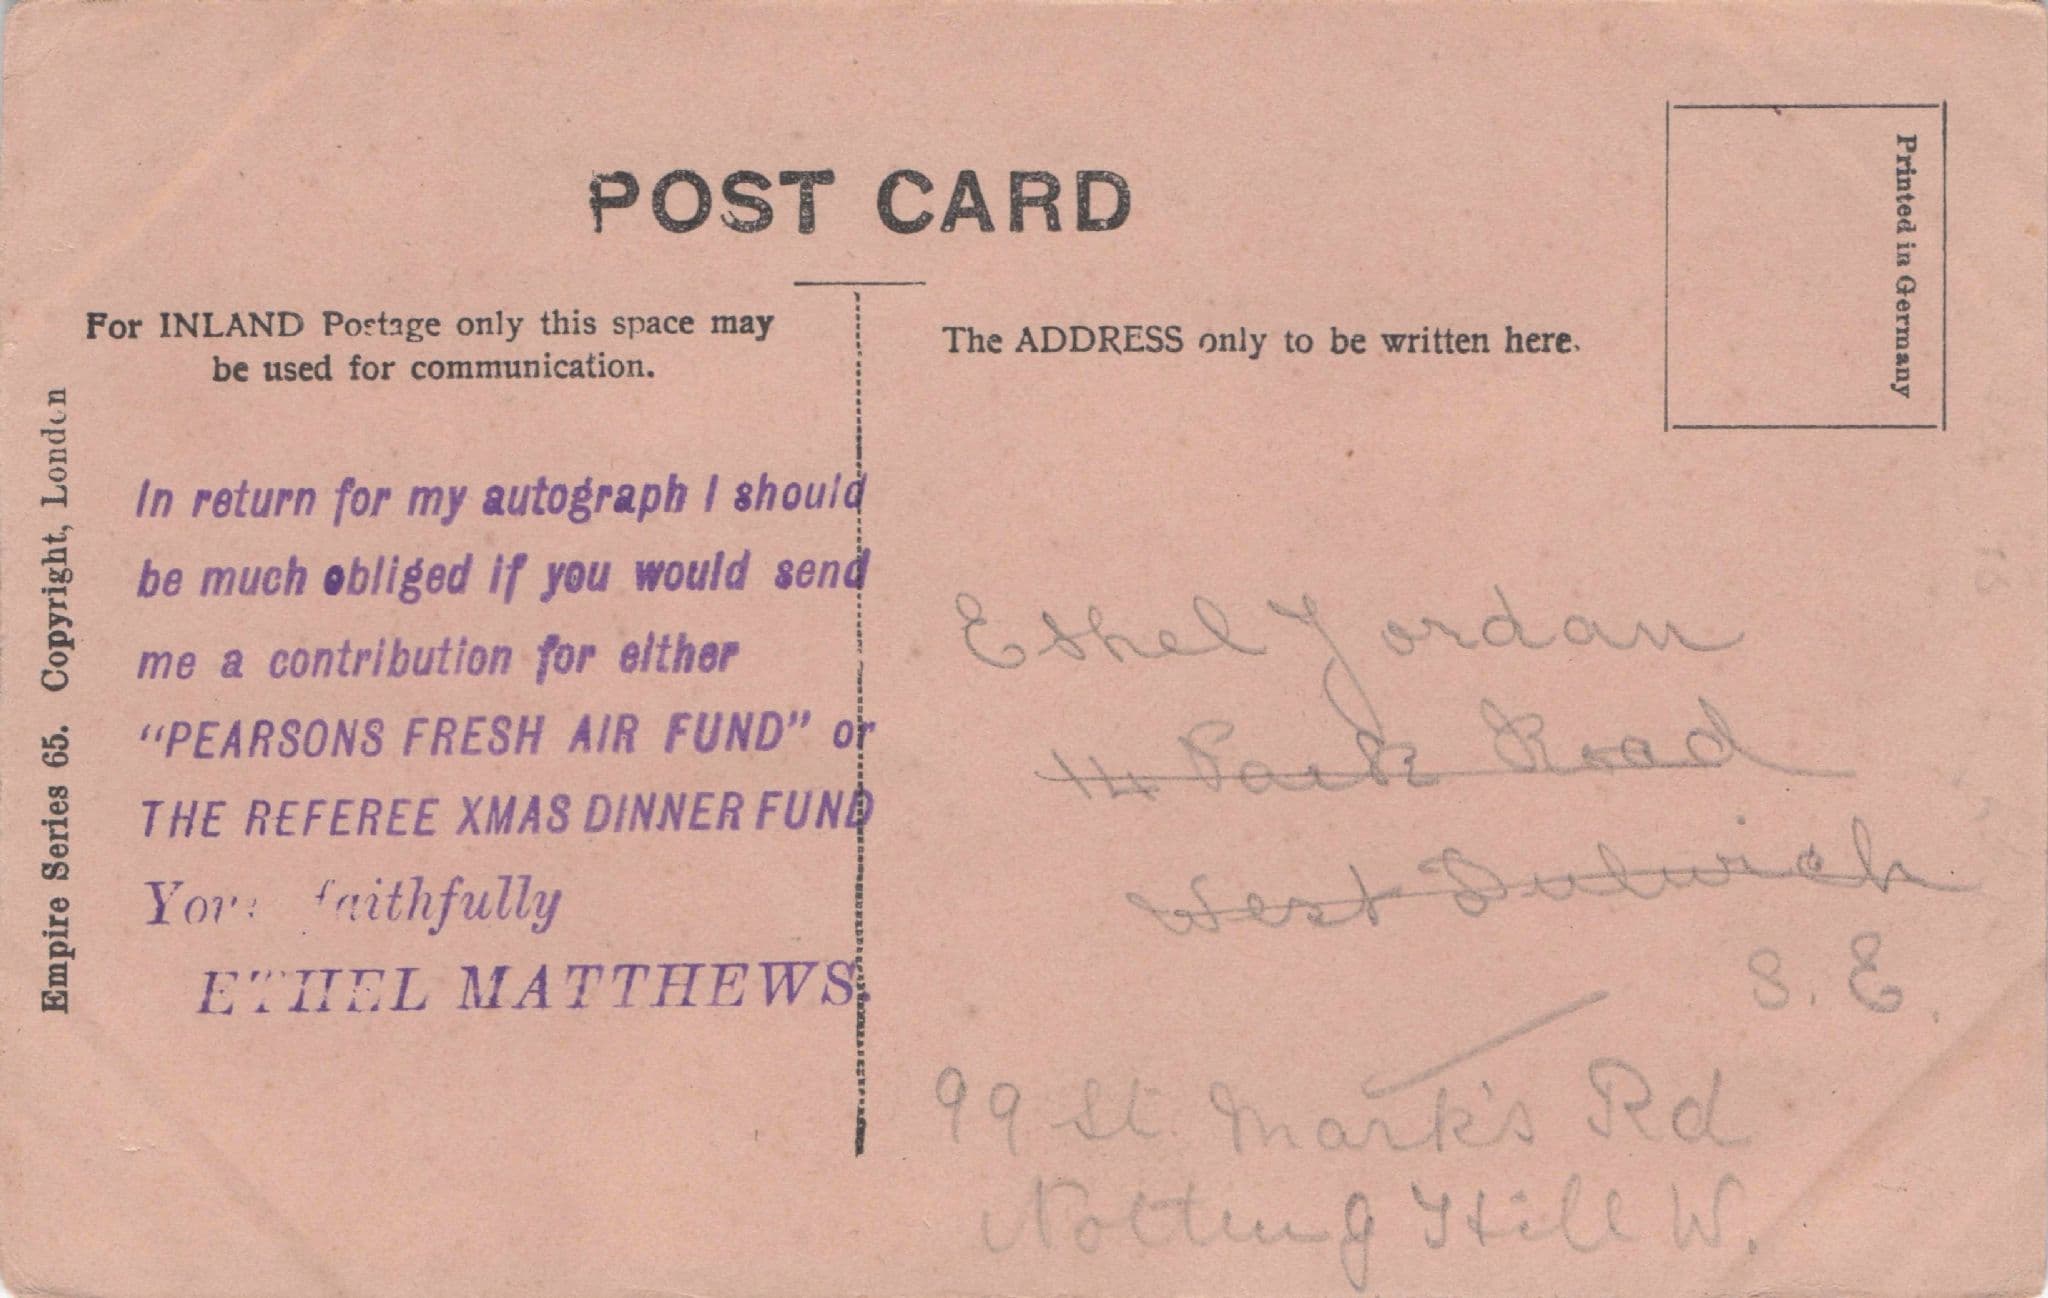 POST CARD
Printed in Germany
For INLAND Postage only this space may
be used for communication.
The ADDRESS only to be written here.
Empire Series 65. Copyright, London
In return for my autograph I should
be much obliged if you would send
me a contribution for either
"PEARSONS FRESH AIR FUND" or
THE REFEREE XMAS DINNER FUND
faithfully
ETHEL MATTHEWS.
Ethel Jordan
14 Park Road
West Dulwich
S. E.
99 St. Mark's Rd
Notting Hill W.